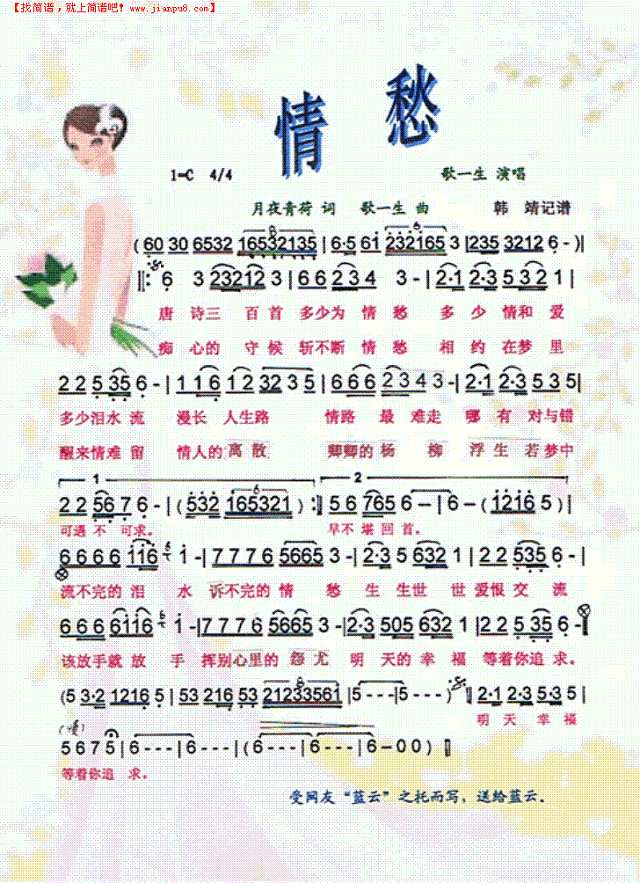 【找简谱，就上简谱吧! www.jianpu8.com】
情愁
1=C 4/4
歌一生 演唱
月夜青荷 词 歌一生 曲 韩 靖记谱
(60 30 6532 16532135 | 6·5 61 232165 3 | 235 3212 6 - )|
‖: 6 3 23212 3 | 6 6 2 3 4 3 - | 2·1 2·3 5 3 2 1 |
唐 诗三 百首 多少为 情愁 多少 情和 爱
痴 心的 守候 斩不断 情愁 相约 在梦 里
2 2 5 35 6 - | 1 1 6 1 2 32 3 5 | 6 6 6 2 3 4 3 - | 2·1 2·3 5 3 5 |
多少泪水流 漫长 人生路 情路 最 难走 哪有 对与错
醒来情难留 情人的 离散 卿卿的 杨 柳 浮生 若梦中
1 2
2 2 56 7 6 - | (532 165321) :‖ 5 6 765 6 - | 6 - (1216 5) |
可遇 不 可求。 早不 堪 回首。
6 6 6 6 116 1 - | 7 7 7 6 5665 3 - | 2·3 5 632 1 | 2 2 535 6 - |
流不完的 泪 水 诉不完的 情 愁 生生世 世 爱恨 交 流
6 6 6 6116 1 - | 7 7 7 6 5665 3 - | 2·3 505 632 1 | 2 2 535 6 - |
该放手就 放 手 挥别心里的 怨尤 明 天的 幸 福 等着你追 求。
(5 3·2 1216 5 | 53 216 53 21233561 | 5 - - - | 5 - - - ) | 2·1 2·3 5 3 5 |
明 天 幸 福
(慢)
5 6 6 7 5 | 6 - - - | 6 - - - | (6 - - - | 6 - - - | 6 - 0 0 ) ‖
等着你追 求。
受网友“蓝云”之托而写，送给蓝云.